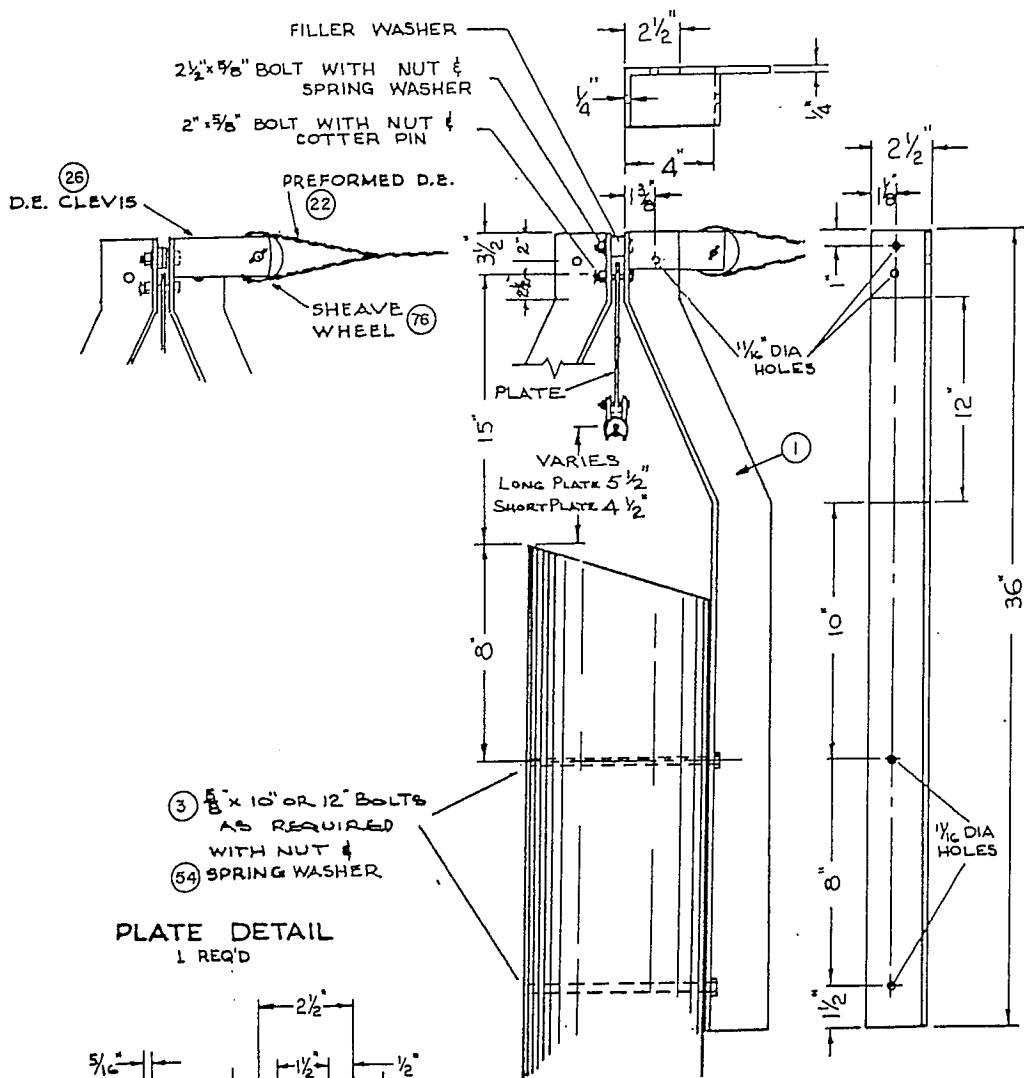 FILLER WASHER
2½" x ⅝" BOLT WITH NUT &
SPRING WASHER
2" x ⅝" BOLT WITH NUT &
COTTER PIN
26
D.E. CLEVIS
PREFORMED D.E.
22
SHEAVE
WHEEL 76
2½"
¼"
¼"
4"
1⅜"
3½"
2"
2½"
1⅛"
1"
11/16" DIA
HOLES
PLATE
15"
VARIES
LONG PLATE 5½"
SHORT PLATE 4½"
1
12"
36"
10"
8"
3 ⅝" x 10" OR 12" BOLTS
AS REQUIRED
WITH NUT &
54 SPRING WASHER
11/16 DIA
HOLES
8"
1½"
PLATE DETAIL
1 REQ'D
2½"
5/16"
1½"
½"